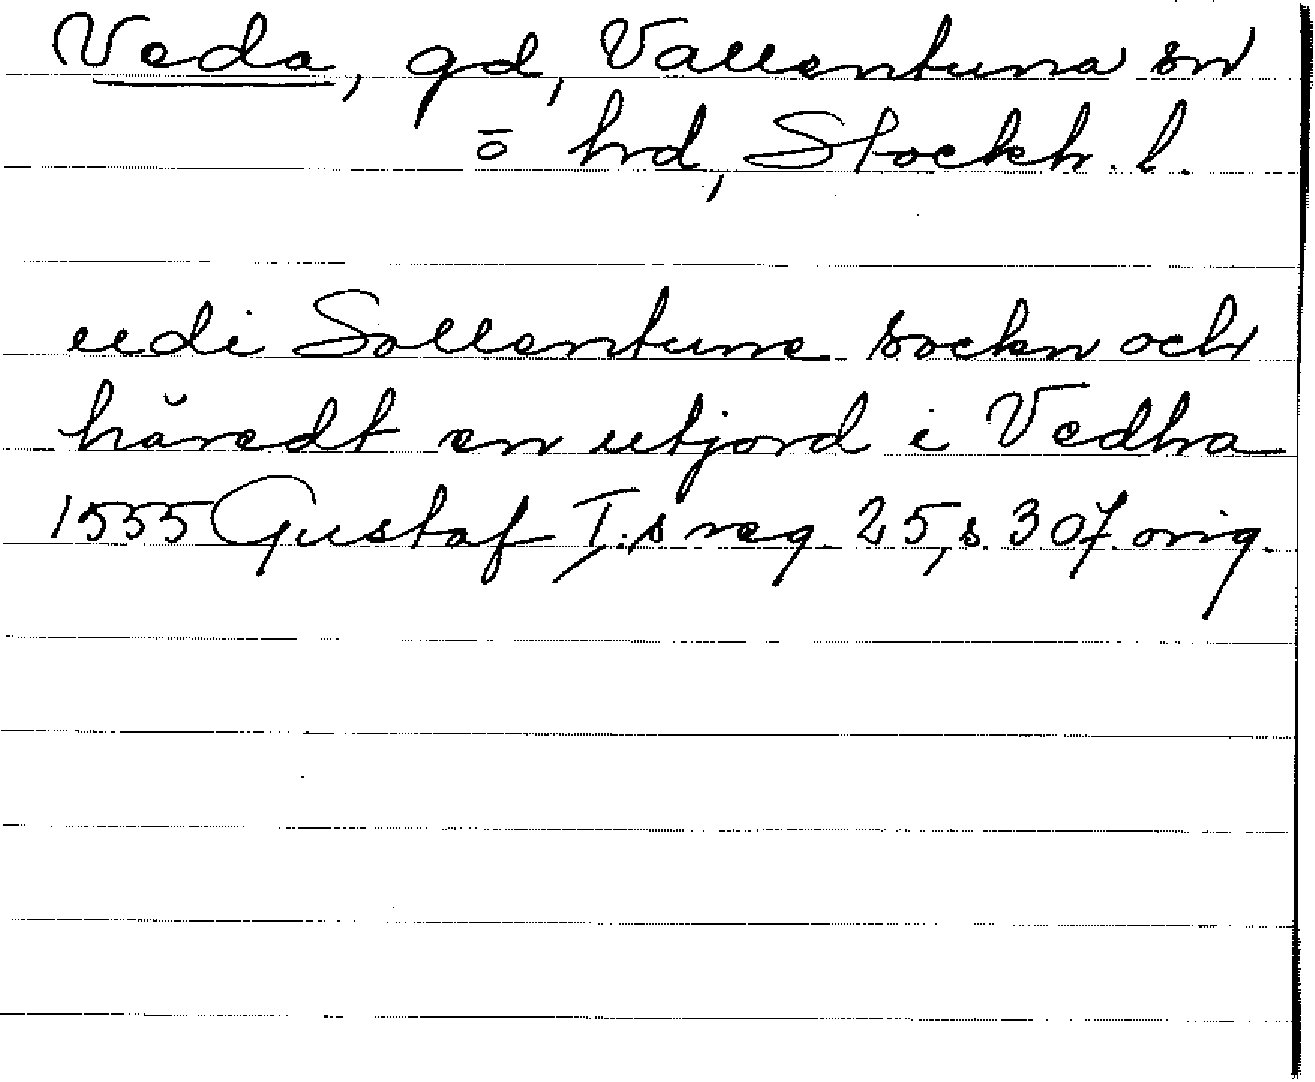 Veda, gd, Vallentuna sn
o hd, Stockh. l.
udi Sollentuna sockn och
häredt en utjord i Vedha
1555 Gustaf I:s reg. 25, s. 307. orig.